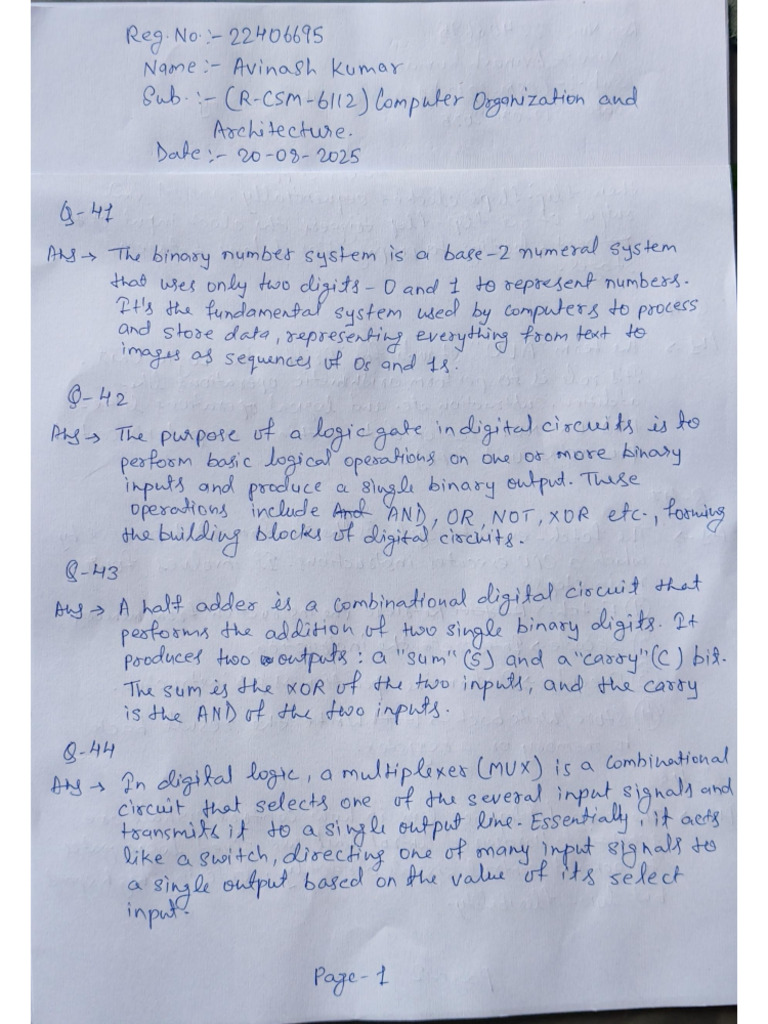 Reg. No :- 22406695
Name :- Avinash Kumar
Sub. :- (R-CSM-6112) Computer Organization and
Architecture.
Date :- 20-08-2025
Q-41
Ans → The binary number system is a base-2 numeral system
that uses only two digits - 0 and 1 to represent numbers.
It's the fundamental system used by computers to process
and store data, representing everything from text to
images as sequences of 0s and 1s.
Q-42
Ans → The purpose of a logic gate in digital circuits is to
perform basic logical operations on one or more binary
inputs and produce a single binary output. These
operations include And AND, OR, NOT, XOR etc., forming
the building blocks of digital circuits.
Q-43
Ans → A half adder is a combinational digital circuit that
performs the addition of two single binary digits. It
produces two outputs : a "sum" (S) and a "carry" (C) bit.
The sum is the XOR of the two inputs, and the carry
is the AND of the two inputs.
Q-44
Ans → In digital logic, a multiplexer (MUX) is a combinational
circuit that selects one of the several input signals and
transmits it to a single output line. Essentially, it acts
like a switch, directing one of many input signals to
a single output based on the value of its select
input.
Page-1